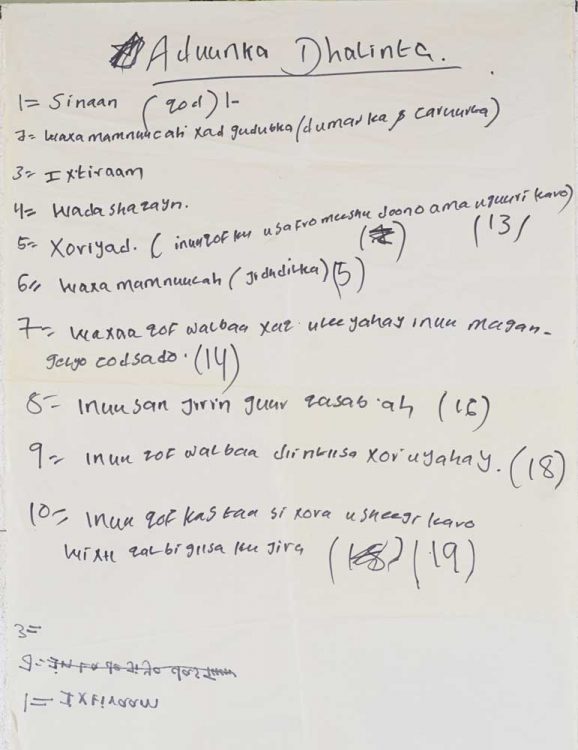 Aduunka Dhalinta.
1= Sinaan (qod) 1-
2= waxa mamnuucah xad gudubka (dumarka & caruurka)
3= Ixtiraam
4= Wadashaqayn.
5= Xoriyad. (inuu qof ku usafro meeshu doono ama u guuri karo)
(13)
6= waxa mamnuucah (jidhdilka) (5)
7= waxaa qof walbaa xaq uleeyahay inuu magan-
gelyo codsado. (14)
8= Inuusan jirin guur qasab ah (16)
9= inuu qof walbaa diintiisa xor uyahay. (18)
10= inuu qof kastaa si xora u sheegi karo
wixii qalbigiisa ku jira (18) (19)
3=
1= Ixtiraam